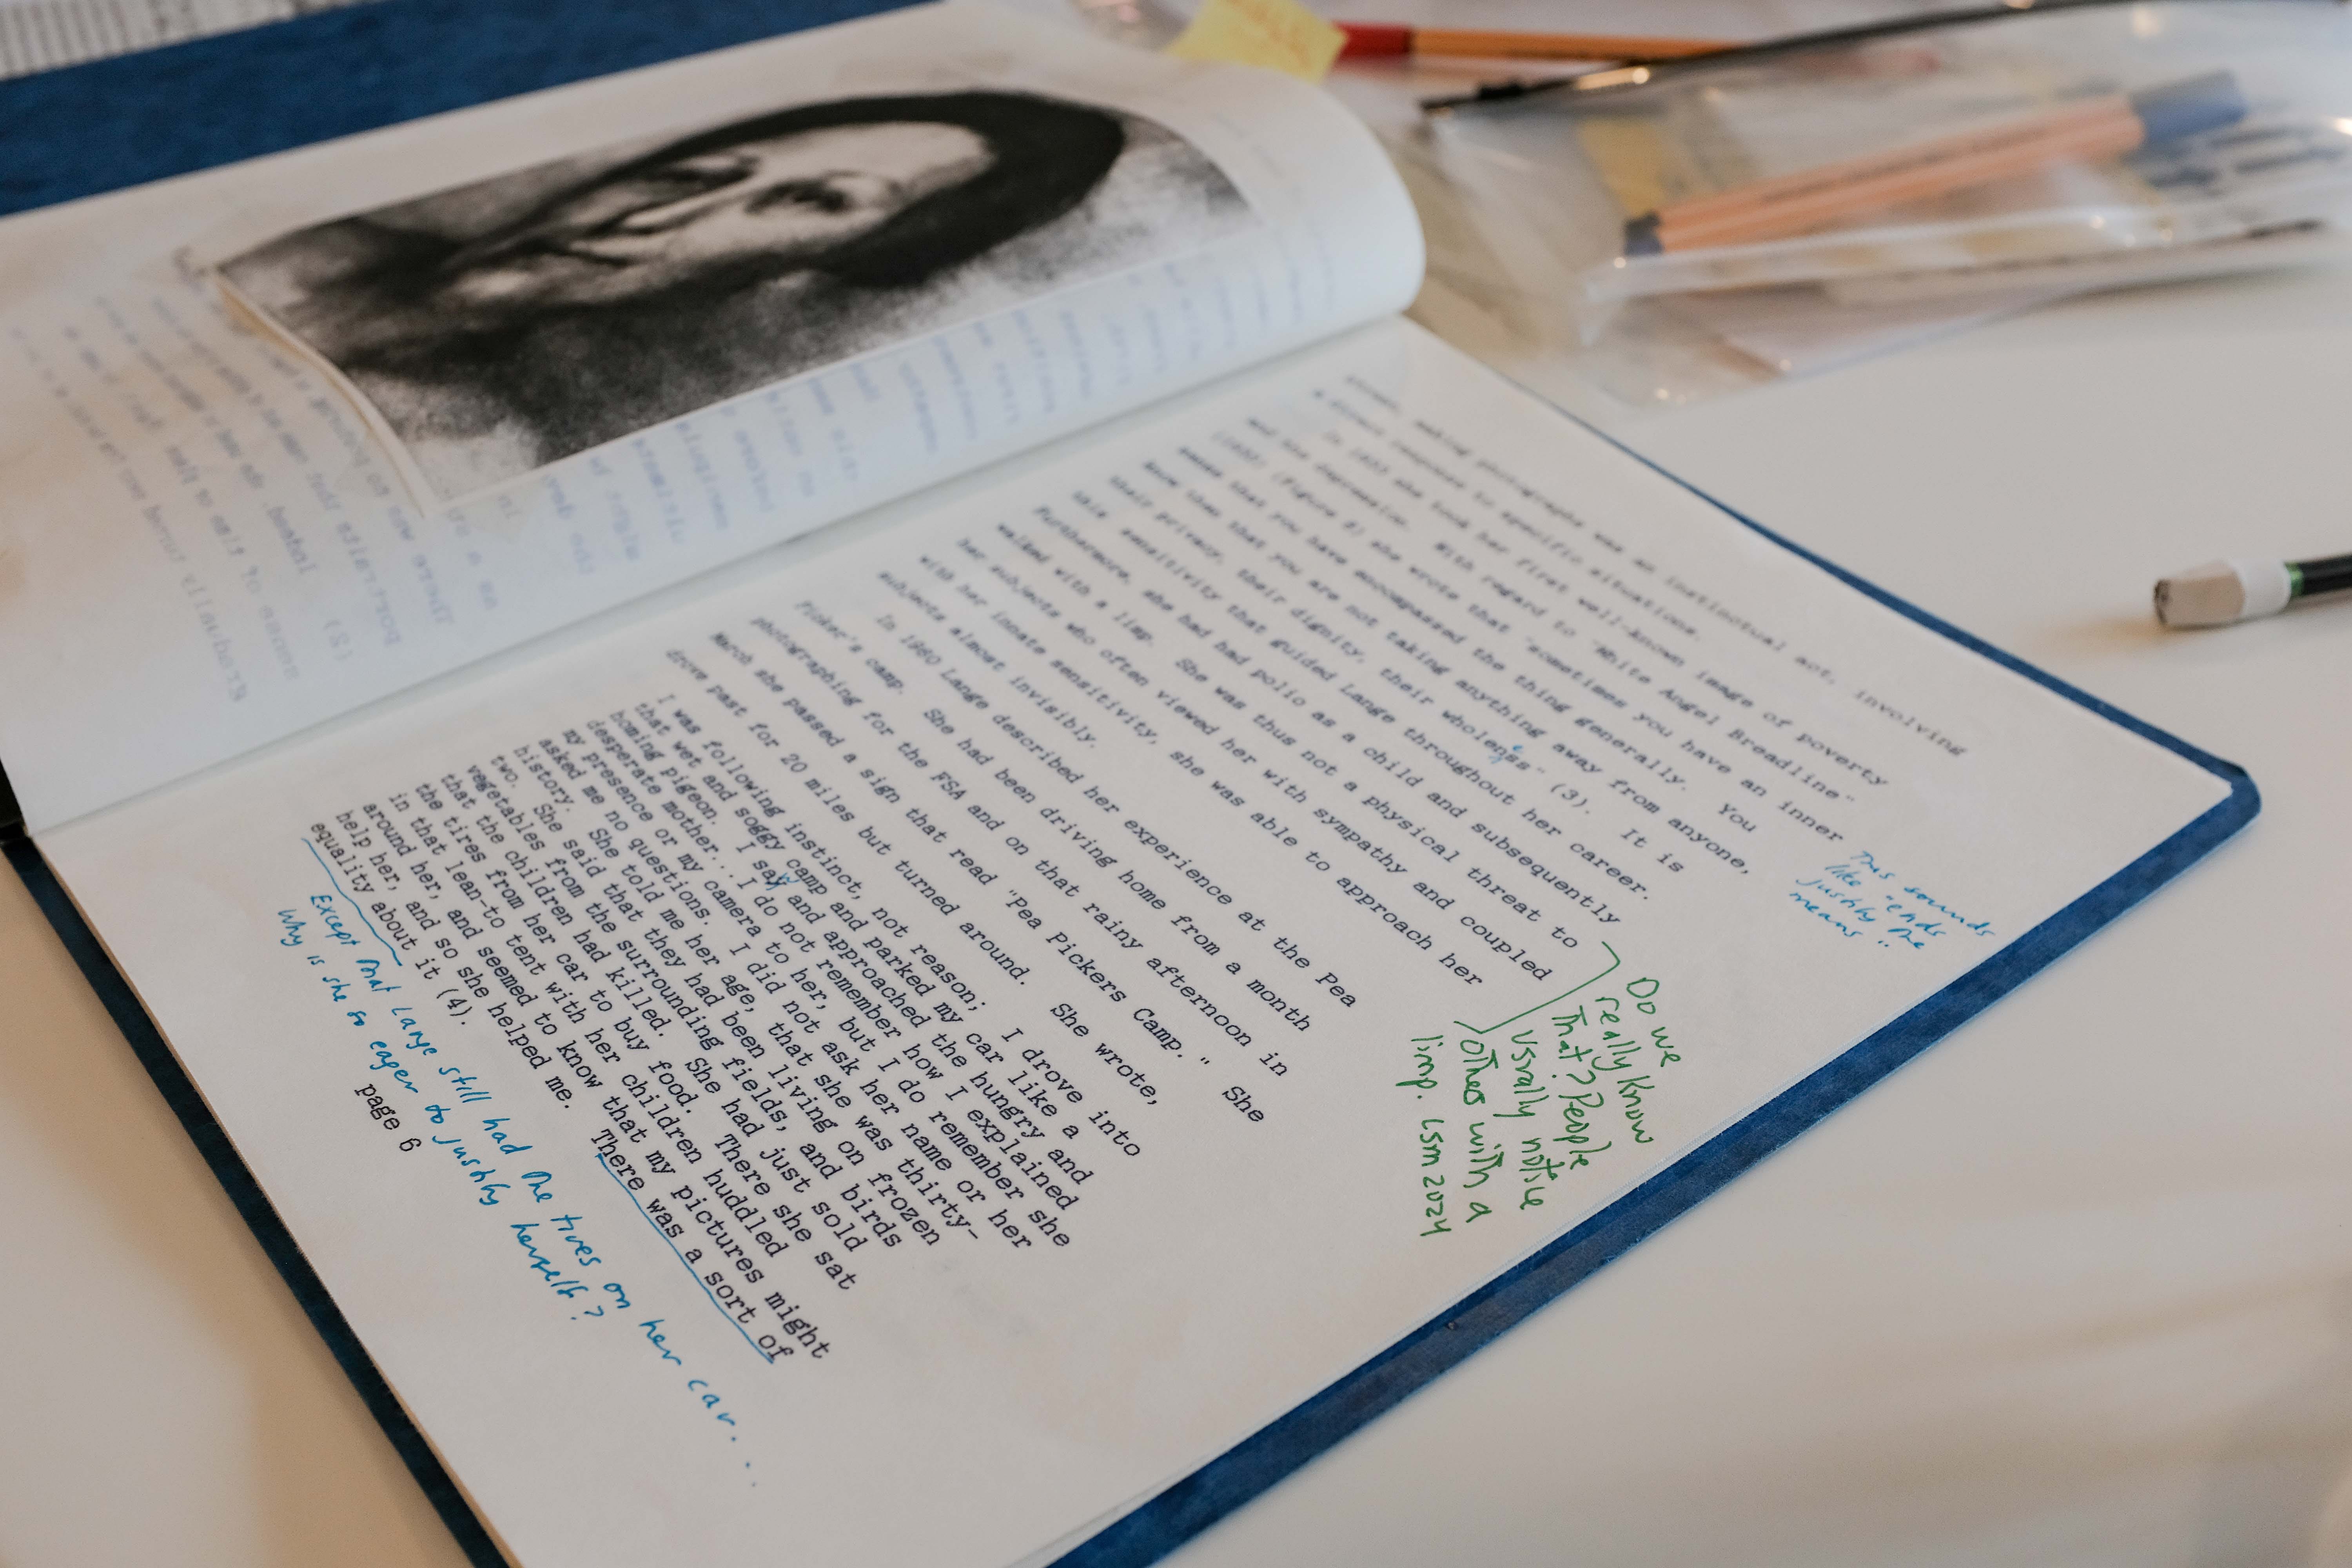 making photographs was an instinctual act, involving
a direct response to specific situations.
In 1933 she took her first well-known image of poverty
and its depression. With regard to "White Angel Breadline"
(1933) (Figure 2) she wrote that "sometimes you have an inner
sense that you have encompassed the thing generally. You
know then that you are not taking anything away from anyone,
their privacy, their dignity, their wholeness" (3). It is
this sensitivity that guided Lange throughout her career.
Furthermore, she had had polio as a child and subsequently
walked with a limp. She was thus not a physical threat to
her subjects who often viewed her with sympathy and coupled
with her innate sensitivity, she was able to approach her
subjects almost invisibly.
In 1960 Lange described her experience at the Pea
Picker's camp. She had been driving home from a month
photographing for the FSA and on that rainy afternoon in
March she passed a sign that read "Pea Pickers Camp." She
drove past for 20 miles but turned around. She wrote,
I was following instinct, not reason; I drove into
that wet and soggy camp and parked my car like a
homing pigeon. I saw and approached the hungry and
desperate mother... I do not remember how I explained
my presence or my camera to her, but I do remember she
asked me no questions. I did not ask her name or her
history. She told me her age, that she was thirty-
two. She said that they had been living on frozen
vegetables from the surrounding fields, and birds
that the children had killed. She had just sold
the tires from her car to buy food. There she sat
in that lean-to tent with her children huddled
around her, and seemed to know that my pictures might
help her, and so she helped me. There was a sort of
equality about it (4).
Except that Lange still had the tires on her car...
Why is she so eager to justify herself?
page 6
This sounds
like "ends
justify the
means"
Do we
really know
That? People
usually notice
others with a
limp. LSM 2024